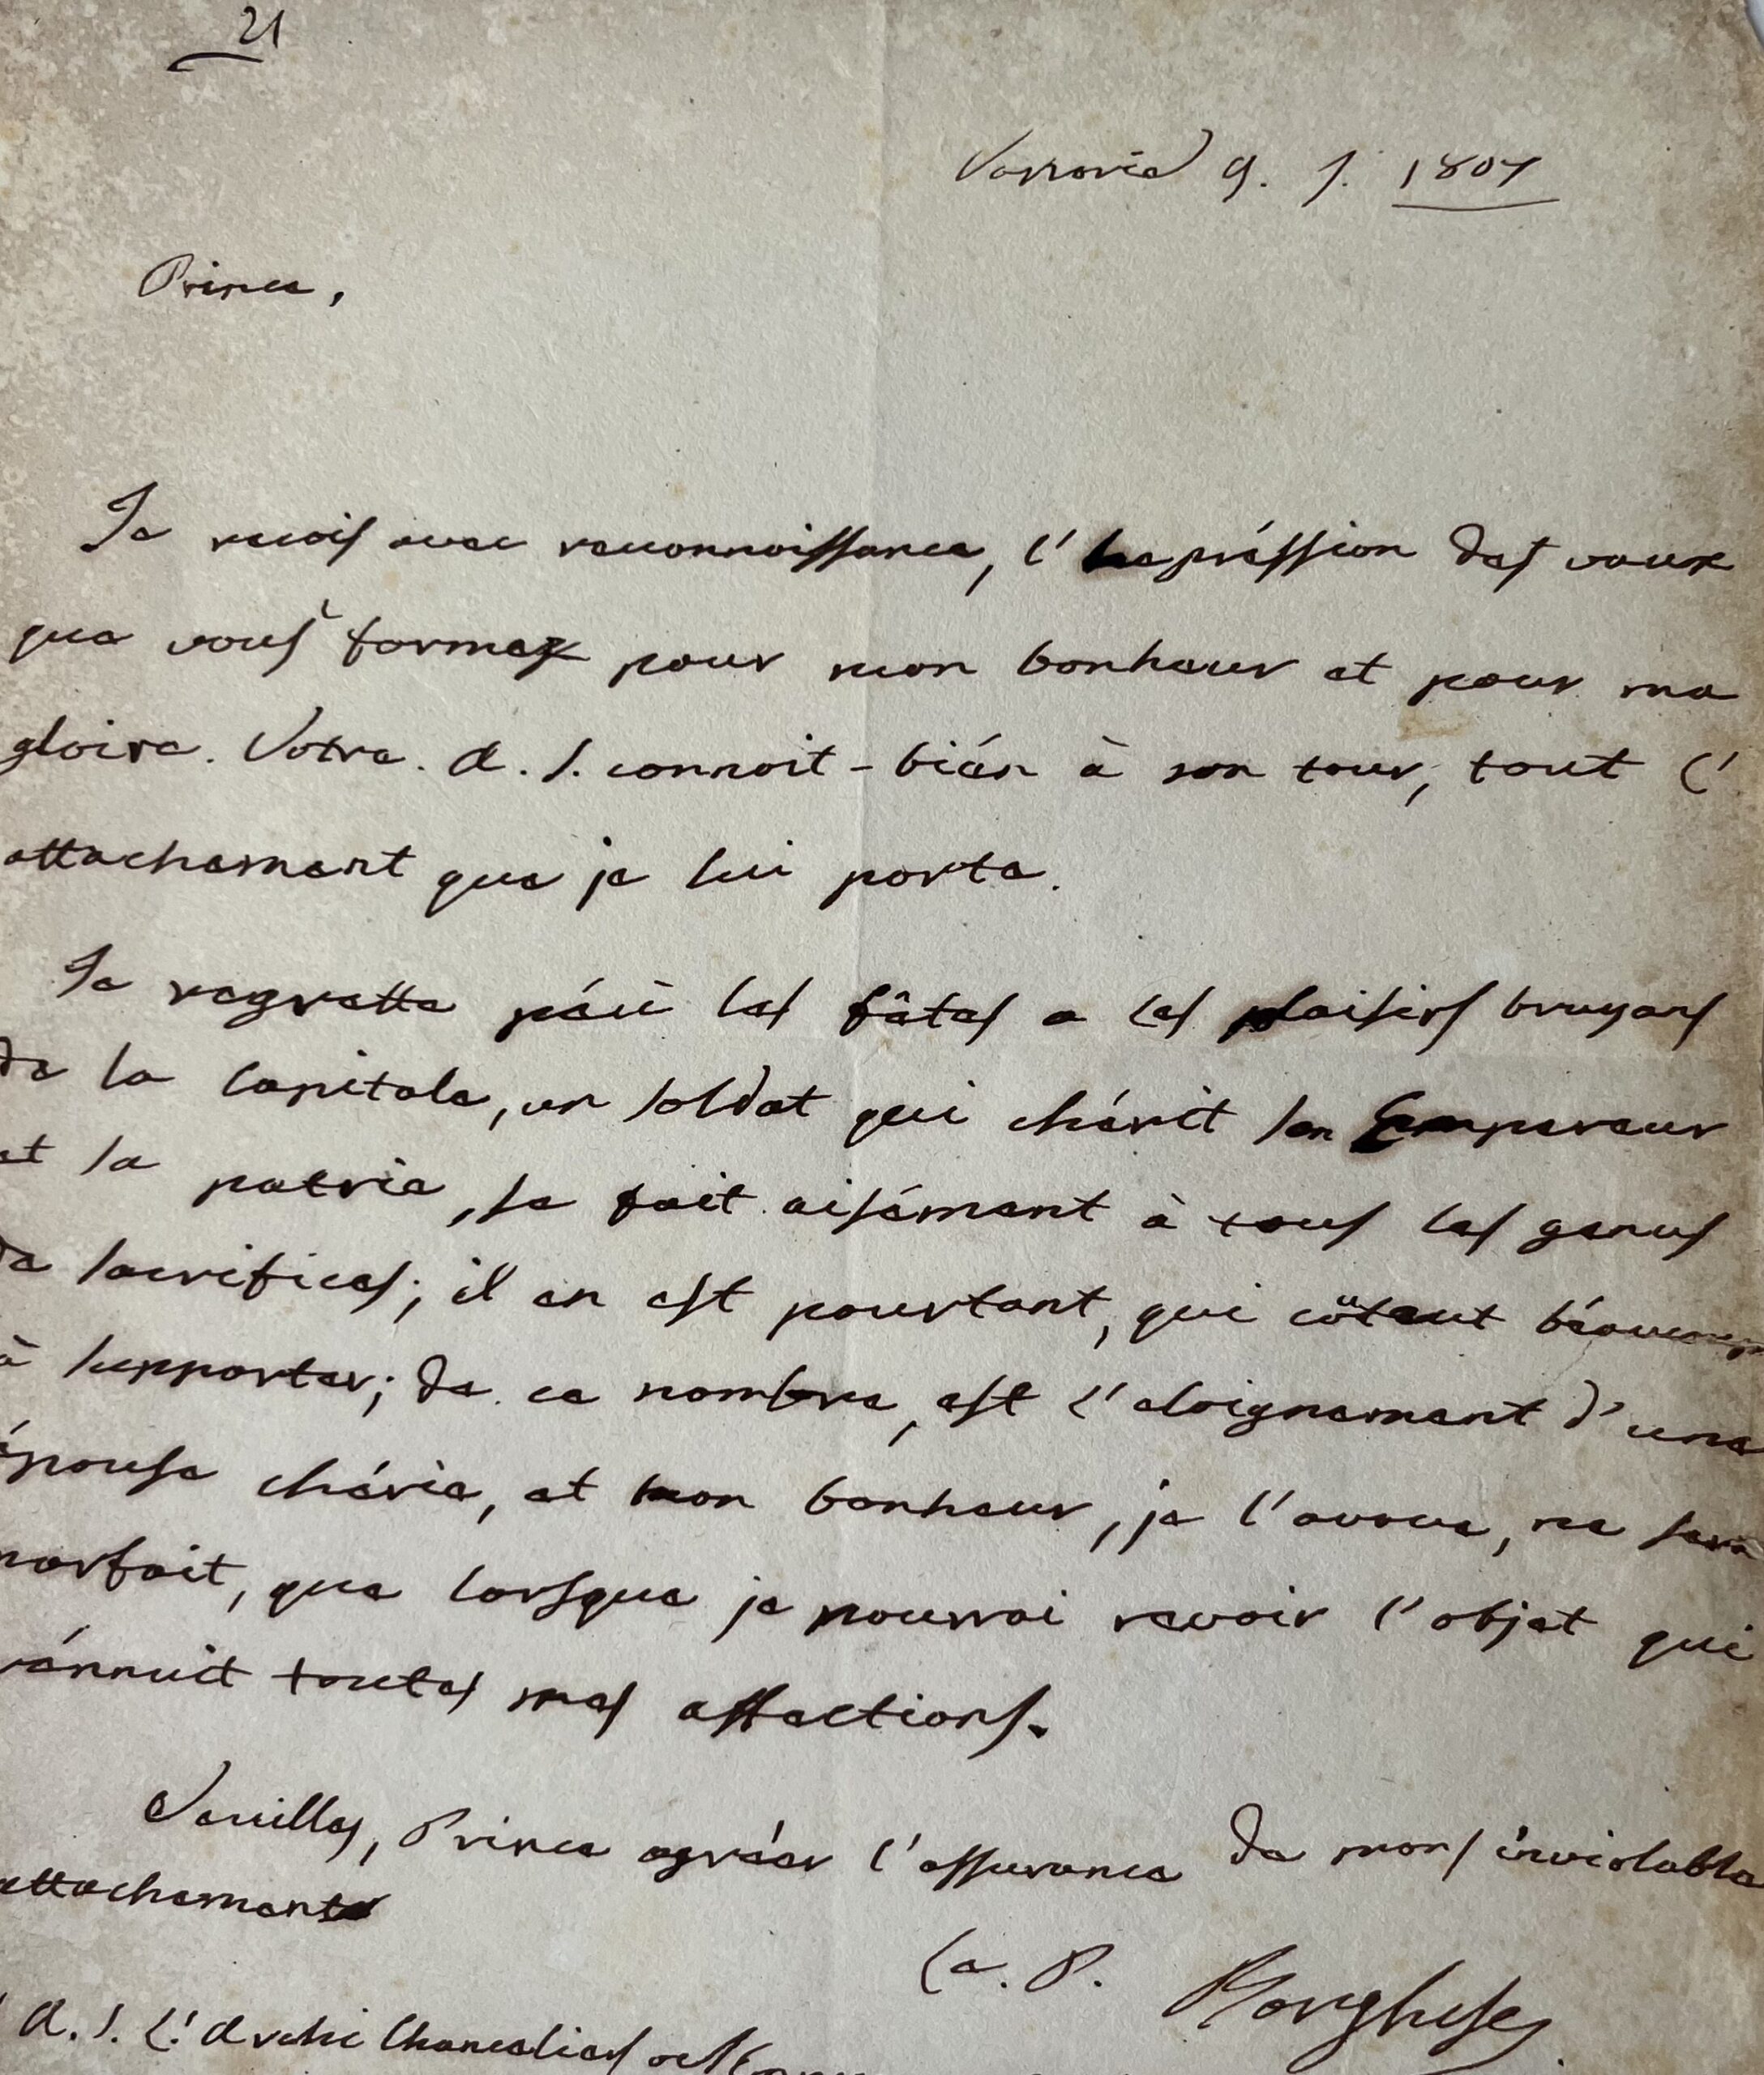 21
Varsovie 9. J. 1807
Prince,
Je recois avec reconnoissance, l' expréssion des voeux
que vous formez pour mon bonheur et pour ma
gloire. Votre. A. S. connoit - bién à son tour, tout l'
attachement que je lui porte.
Je regrette péù les fêtes e les plaisirs bruyans
de la Capitale, un soldat qui chérit son Empereur
et sa patrie, se fait aisément à tous les genres
de sacrifices; il en est pourtant, qui côtent
à supporter; de ce nombre, est l'eloignement d'une
épouse chérie, et mon bonheur, je l'avoue, ne sera
parfait, que lorsque je pourrai revoir l'objet qui
réunnit toutes mes affections.
Veuilles, Prince agréér l'assurance de mon inviolable
attachement
Le. P. Borghese
A. S. L' Archi Chancelier